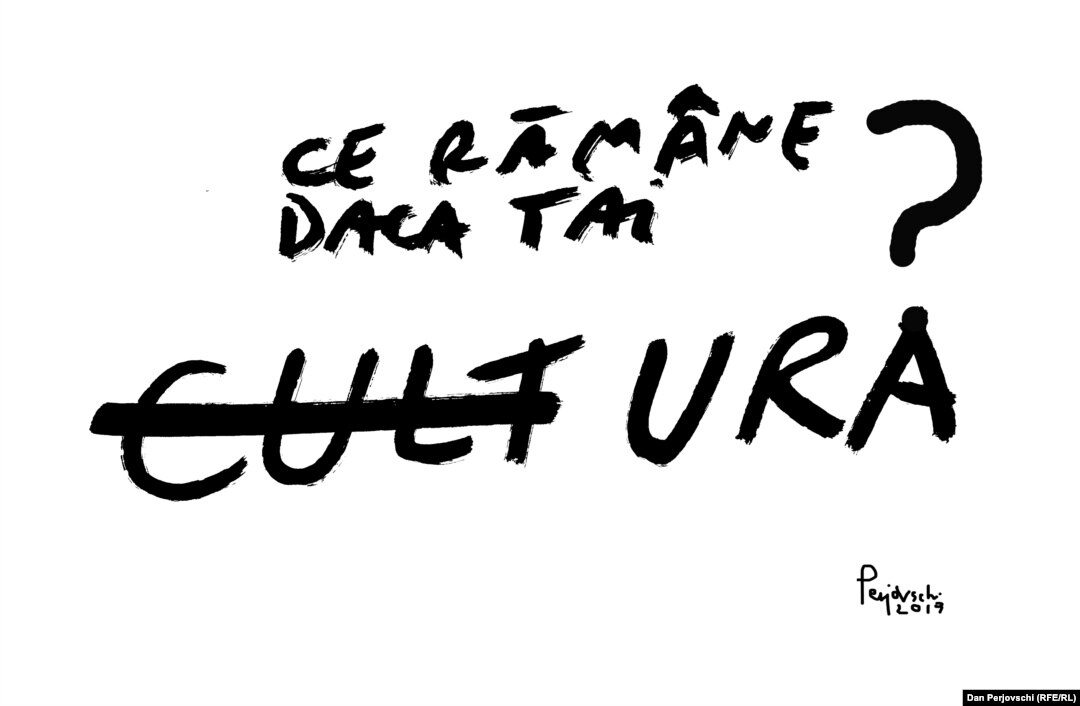 CE RĂMÂNE
DACA TAI ?
CULTURĂ
Perjovschi
2019
Dan Perjovschi (RFE/RL)